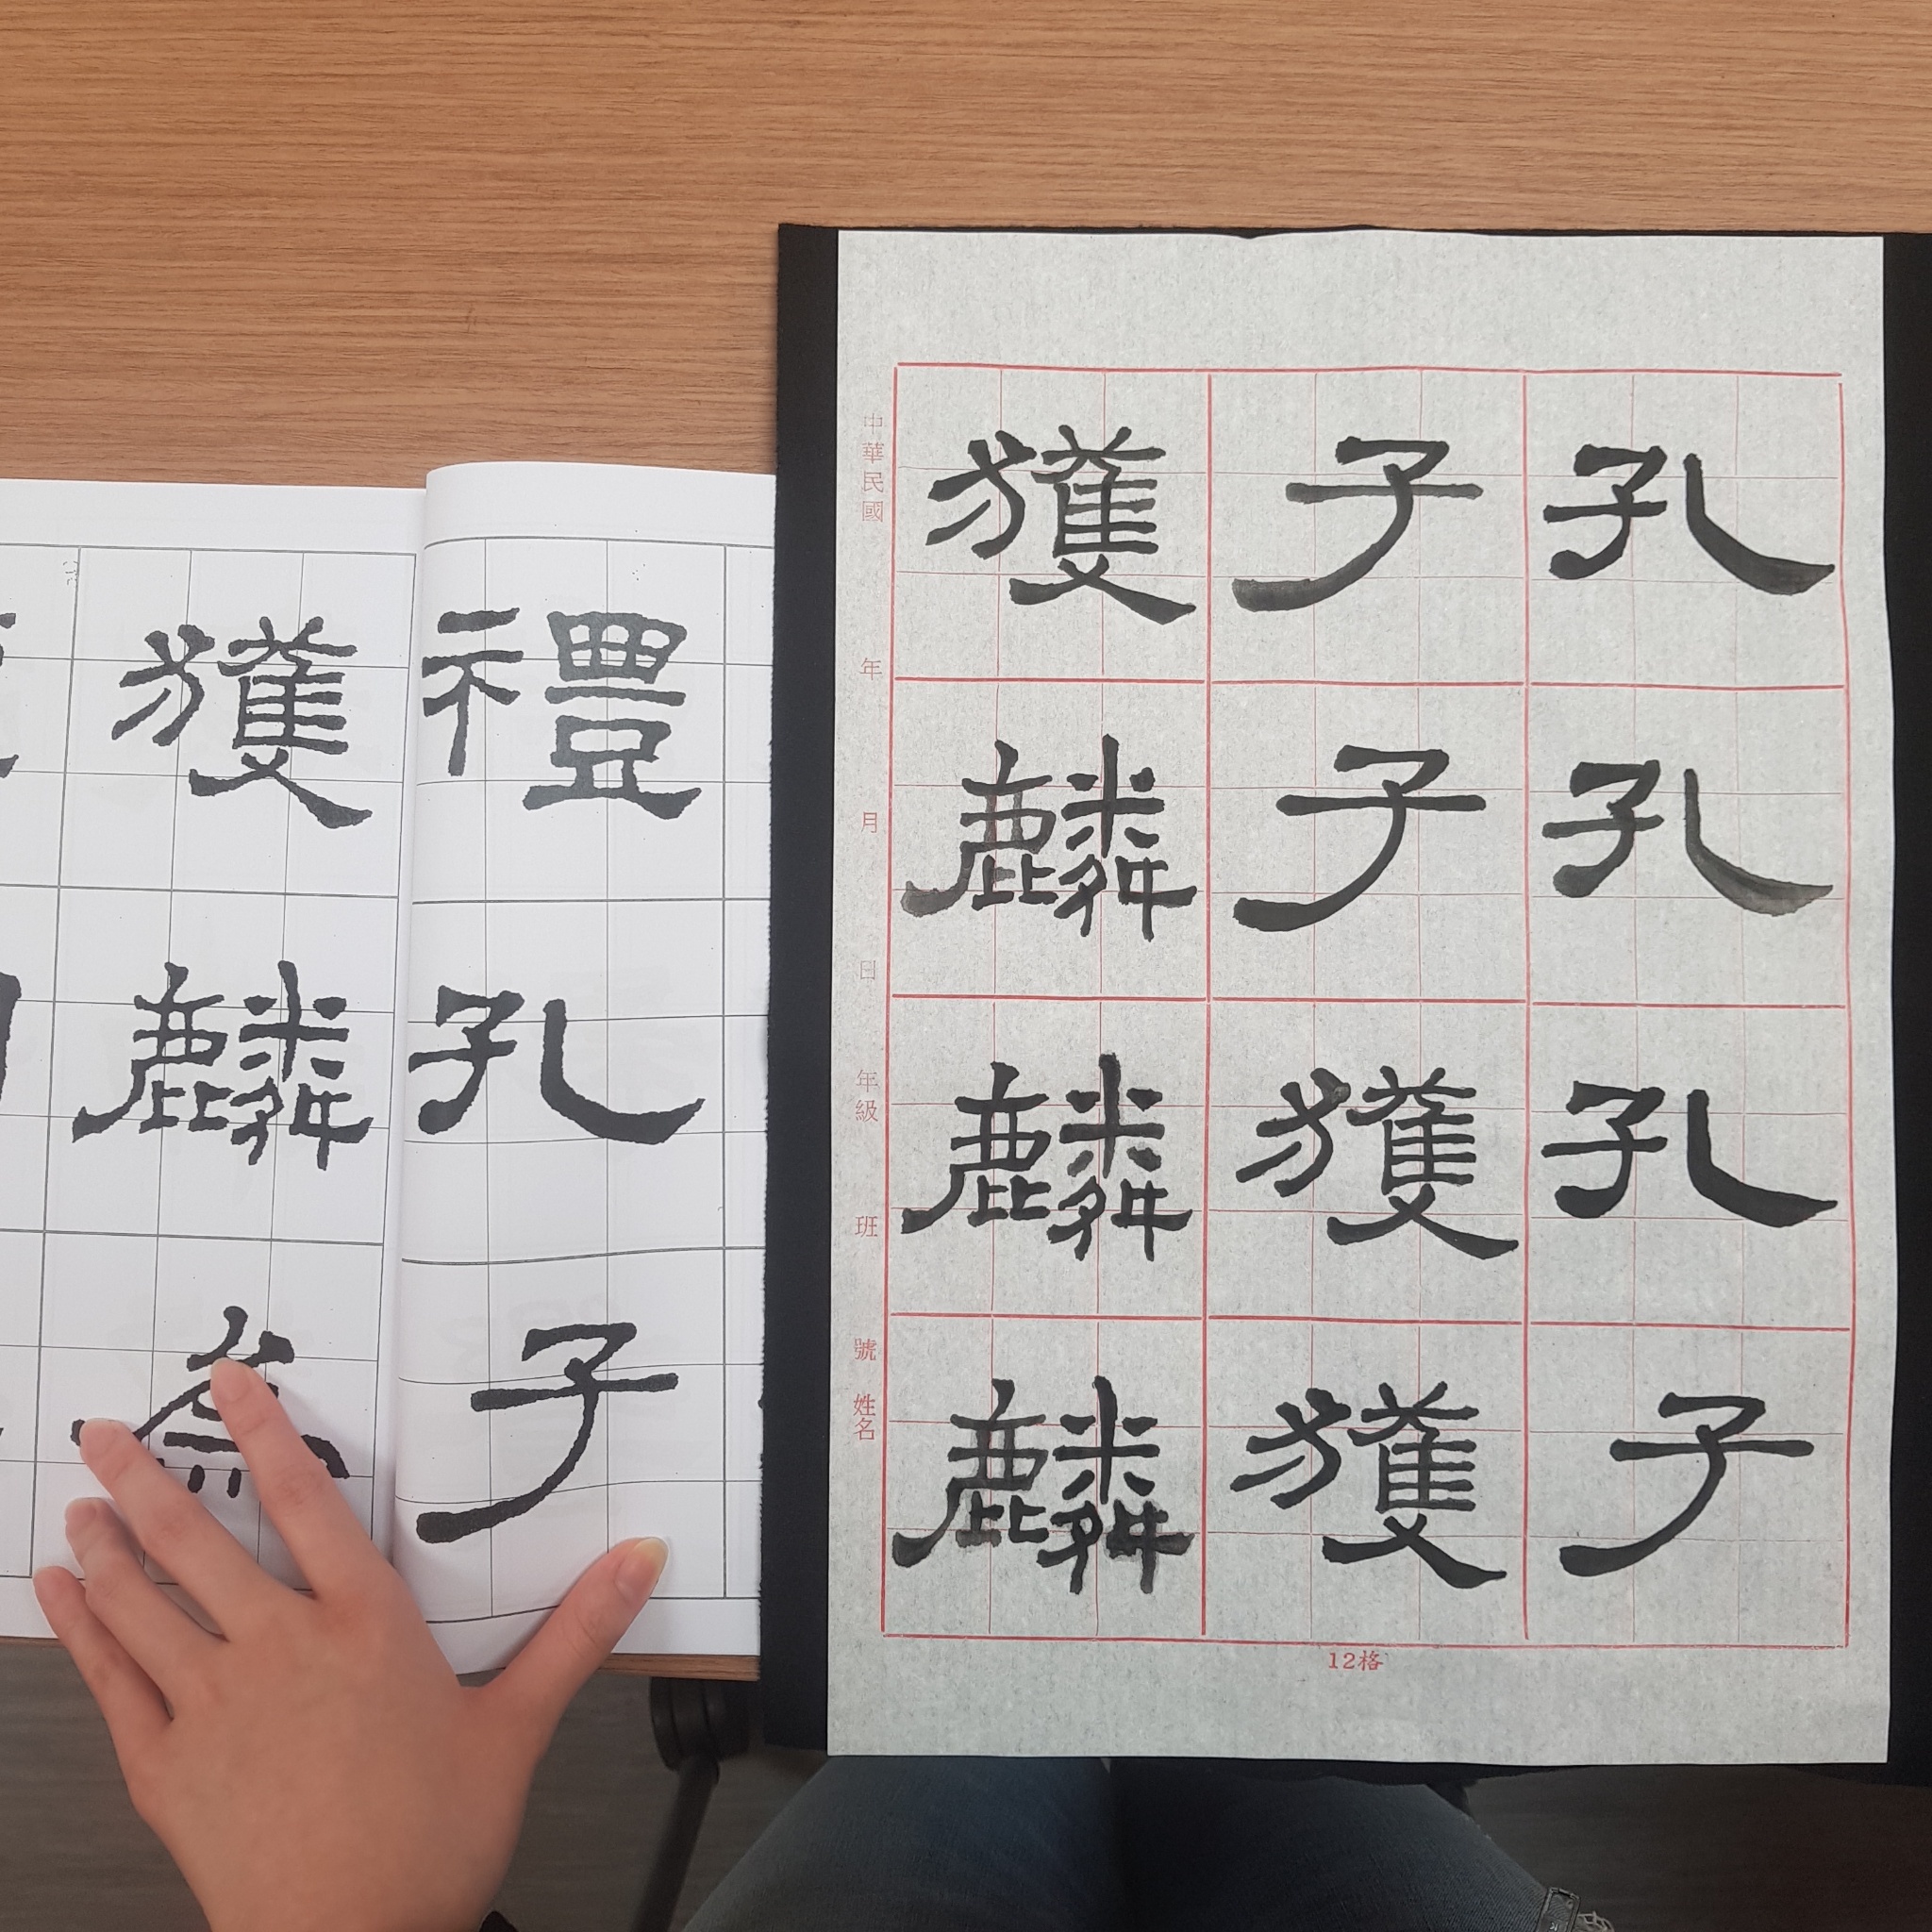 孔孔孔子
子子獲獲
獲麟麟麟
中華民國 年 月 日 年級 班 號 姓名
12格
禮孔子
獲麟為